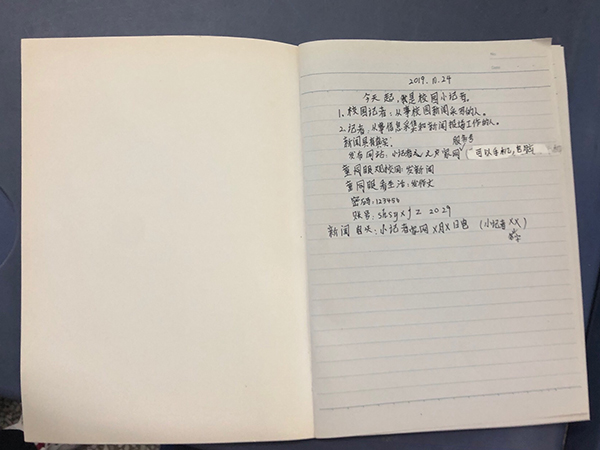 2019.11.24
今天起,我是校园小记者。
1.校园记者:从事校园新闻采写的人。
2.记者:从事信息采集和新闻报道工作的人。
新闻要真实。
服务号
发布网站:小记者 之家网 可以手机,电脑
童网眼观校园:发新闻
童网眼看生活:发作文
密码:123456
账号:shsyxjz 2029
新闻 报头:小记者 网 X月X日电 (小记者XX)